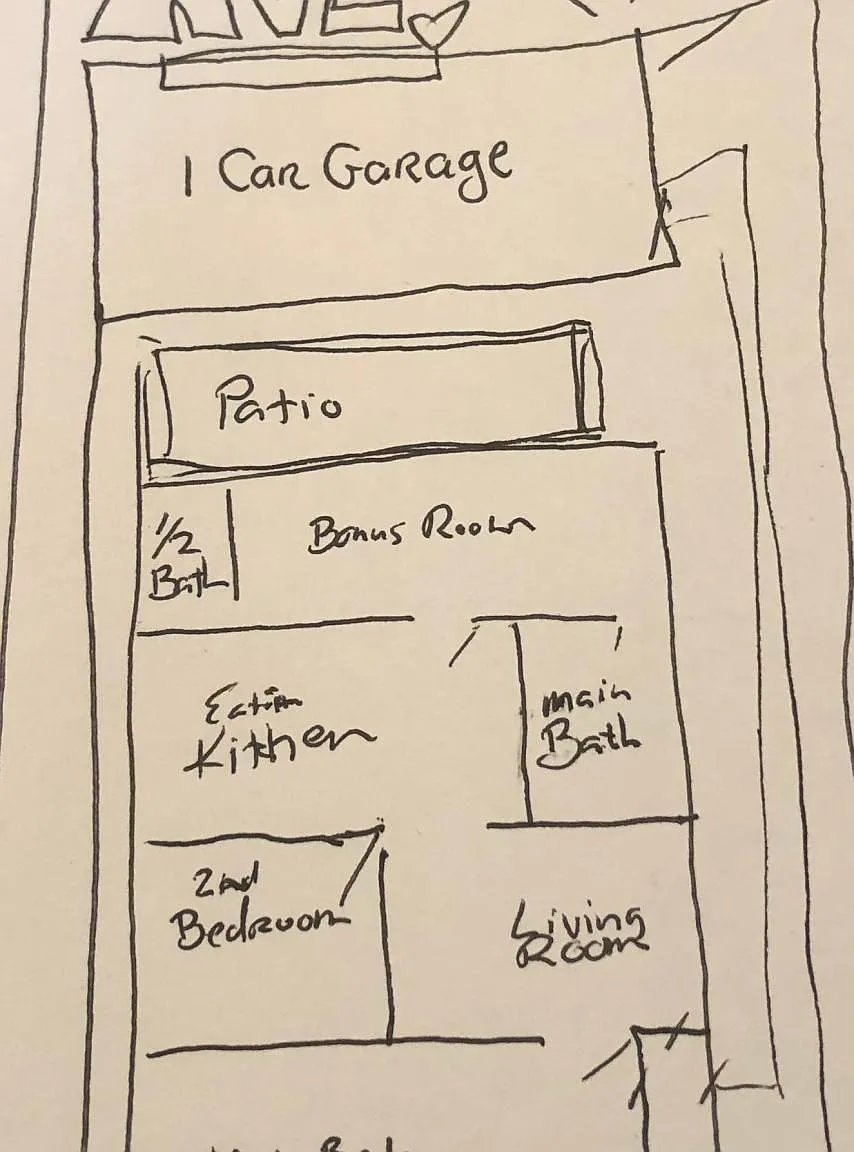 1 Car Garage
Patio
1/2
Bath
Bonus Room
Eatin
Kithen
main
Bath
2nd
Bedroom
Living
Room